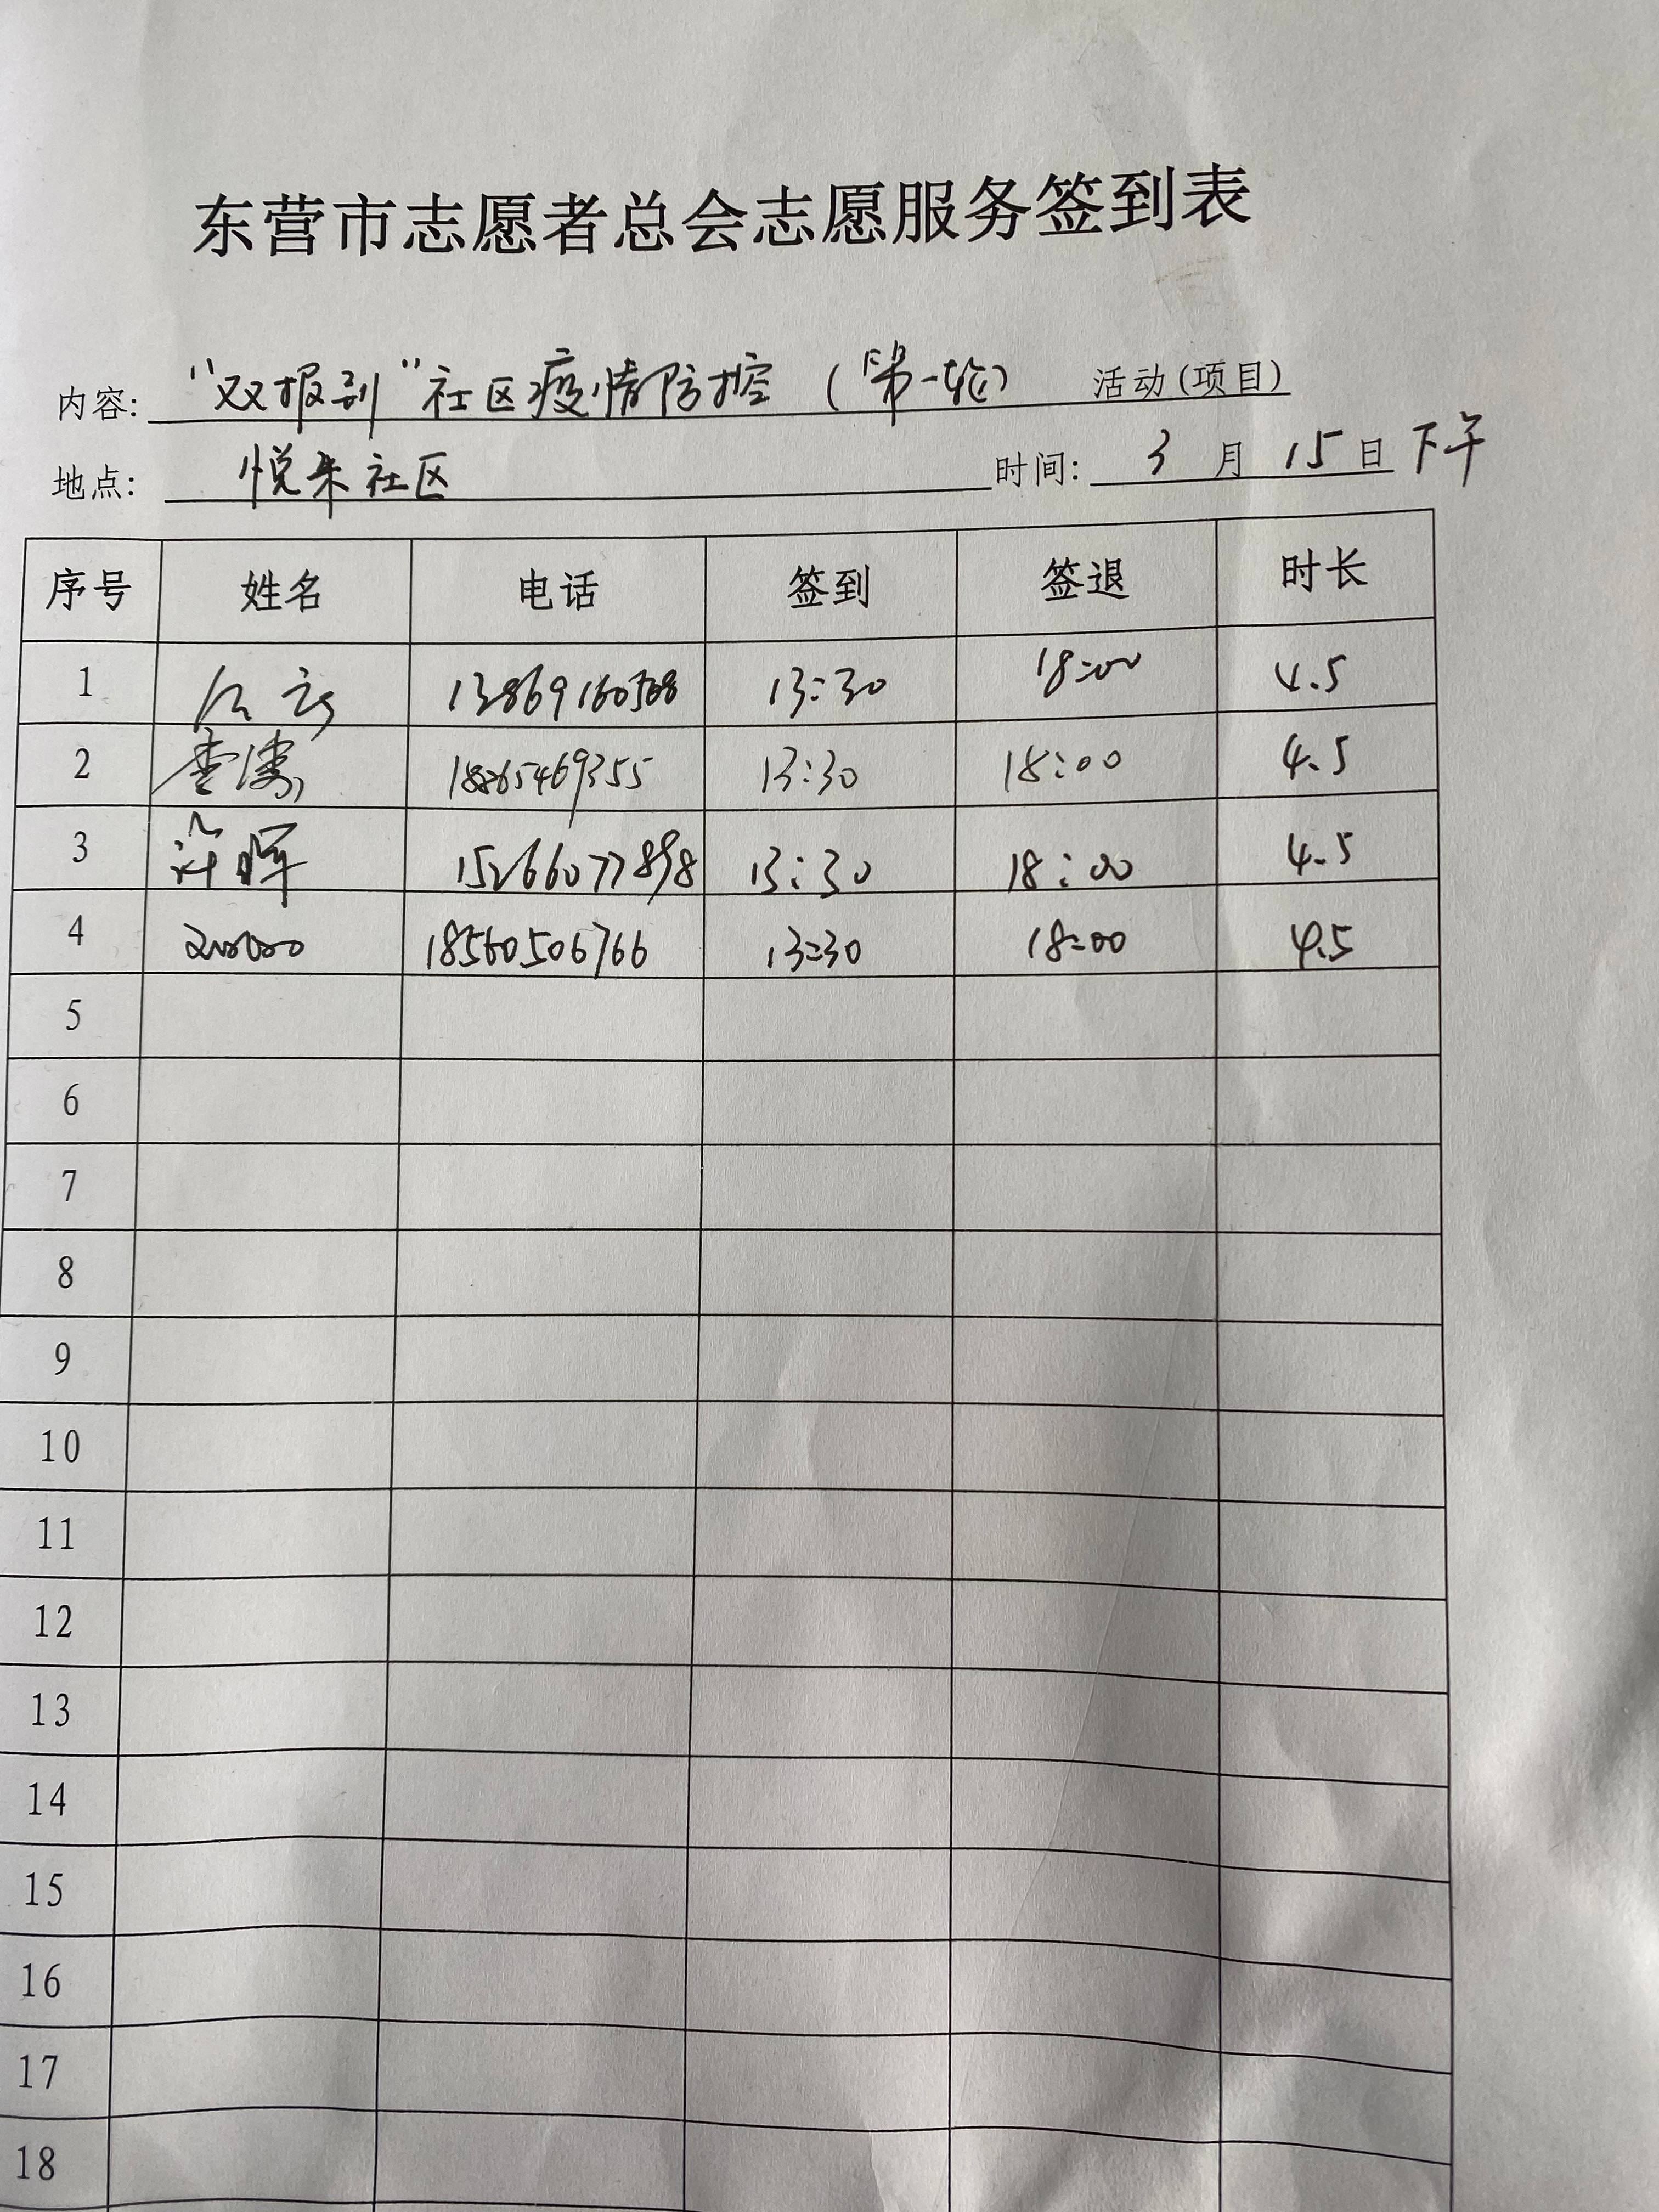 东营市志愿者总会志愿服务签到表
内容: “双报到”社区疫情防控（第一轮） 活动(项目)
地点: 悦来社区 时间: 3 月 15 日 下午
序号 姓名 电话 签到 签退 时长
1 13869160568 13:30 18:00 4.5
2 18265469355 13:30 18:00 4.5
3 许晖 15266077898 13:30 18:00 4.5
4 18560506766 13:30 18:00 4.5
5
6
7
8
9
10
11
12
13
14
15
16
17
18